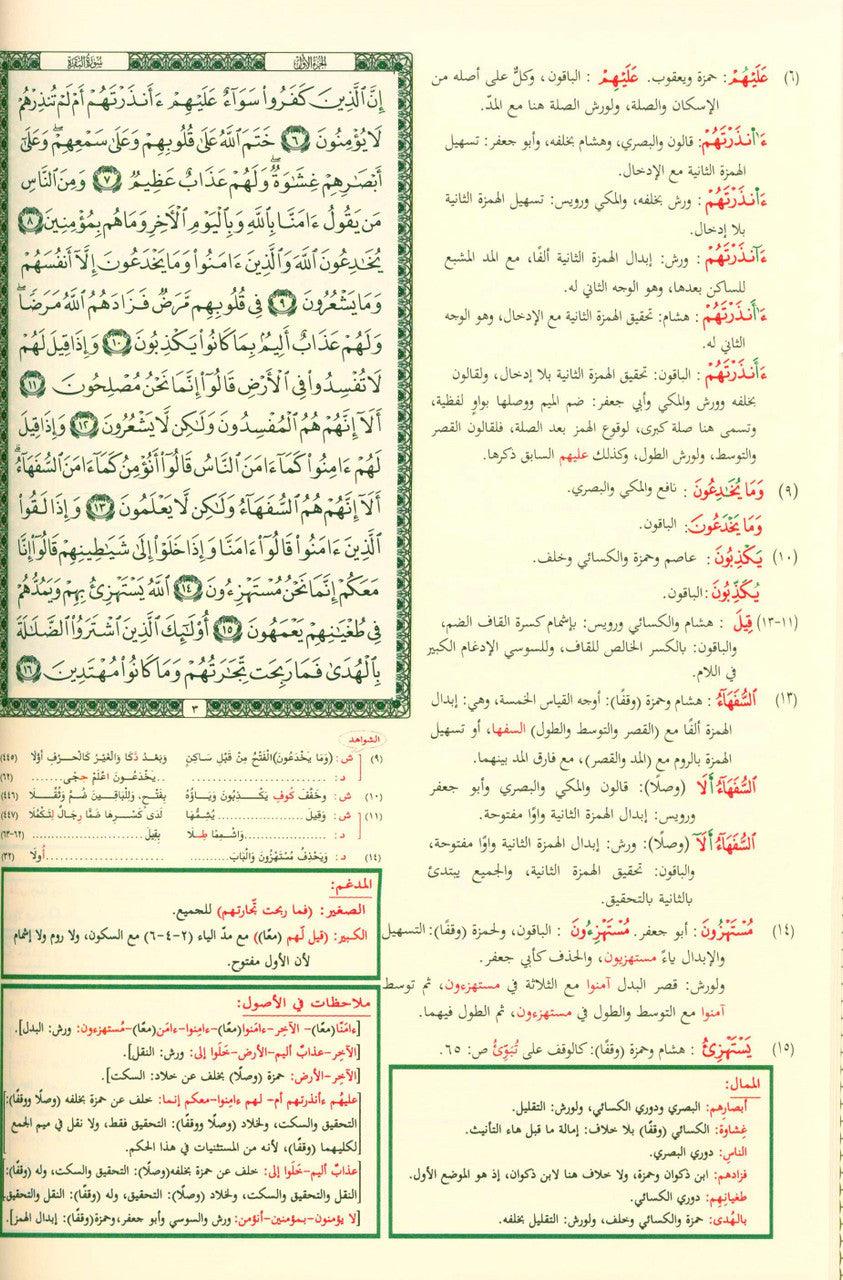 (٦) عَلَيْهُمْ: حمزة ويعقوب. عَلَيْهِمْ : الباقون، وكلٌّ على أصله من
الإسكان والصلة، ولورش الصلة هنا مع المدّ.
ءَاْنذَرْتَهُمْ: قالون والبصري، وهشام بخلفه، وأبو جعفر: تسهيل
الهمزة الثانية مع الإدخال.
ءَانذَرْتَهُمْ : ورش بخلفه، والمكي ورويس: تسهيل الهمزة الثانية
بلا إدخال.
ءَآنذَرْتَهُمْ : ورش: إبدال الهمزة الثانية ألفًا، مع المد المشبع
للساكن بعدها، وهو الوجه الثاني له.
ءَاَ۬نذَرْتَهُمْ : هشام: تحقيق الهمزة الثانية مع الإدخال، وهو الوجه
الثاني له.
ءَأَنذَرْتَهُمْ : الباقون: تحقيق الهمزة الثانية بلا إدخال، ولقالون
بخلفه وورش والمكي وأبي جعفر: ضم الميم ووصلها بواوٍ لفظية،
وتسمى هنا صلة كبرى، لوقوع الهمز بعد الصلة، فلقالون القصر
والتوسط، ولورش الطول، وكذلك عليهم السابق ذكرها.
(٩) وَمَا يُخَٰدِعُونَ : نافع والمكي والبصري.
وَمَا يَخْدَعُونَ: الباقون.
(١٠) يَكْذِبُونَ: عاصم وحمزة والكسائي وخلف.
يُكَذِّبُونَ: الباقون.
(١١-١٣) قِيلَ : هشام والكسائي ورويس: بإشمام كسرة القاف الضم،
والباقون: بالكسر الخالص للقاف، وللسوسي الإدغام الكبير
في اللام.
(١٣) السُّفَهَآءُ : هشام وحمزة (وقفًا): أوجه القياس الخمسة، وهي: إبدال
الهمزة ألفًا مع (القصر والتوسط والطول) السفها، أو تسهيل
الهمزة بالروم مع (المد والقصر)، مع فارق المد بينهما.
السُّفَهَآءُ أَلَآ (وصلًا): قالون والمكي والبصري وأبو جعفر
ورويس: إبدال الهمزة الثانية واوًا مفتوحة.
السُّفَهَآءُ أَلَآ (وصلًا): ورش: إبدال الهمزة الثانية واوًا مفتوحة،
والباقون: تحقيق الهمزة الثانية، والجميع يبتدئ
بالثانية بالتحقيق.
(١٤) مُسْتَهْزُونَ : أبو جعفر. مُسْتَهْزِءُونَ : الباقون، ولحمزة (وقفًا): التسهيل
والإبدال ياءً مستهزيون، والحذف كأبي جعفر.
ولورش: قصر البدل آمنوا مع الثلاثة في مستهزءون، ثم توسط
آمنوا مع التوسط والطول في مستهزءون، ثم الطول فيهما.
(١٥) يَسْتَهْزِئُ : هشام وحمزة (وقفًا): كالوقف على تُبَوِّئُ ص: ٦٥.
الممال:
أبصارِهم: البصري ودوري الكسائي، ولورش: التقليل.
غِشاوة: الكسائي (وقفًا) بلا خلاف: إمالة ما قبل هاء التأنيث.
الناسِ: دوري البصري.
فزادهم: ابن ذكوان وحمزة، ولا خلاف هنا لابن ذكوان، إذ هو الموضع الأول.
طغيانِهِم: دوري الكسائي.
بالهُدى: حمزة والكسائي وخلف، ولورش: التقليل بخلفه.
الجُزْءُ الأَوَّلُ
سُورَةُ البَقَرَةِ
إِنَّ ٱلَّذِينَ كَفَرُوا۟ سَوَآءٌ عَلَيْهِمْ ءَأَنذَرْتَهُمْ أَمْ لَمْ تُنذِرْهُمْ
لَا يُؤْمِنُونَ ٦ خَتَمَ ٱللَّهُ عَلَىٰ قُلُوبِهِمْ وَعَلَىٰ سَمْعِهِمْ ۖ وَعَلَىٰٓ
أَبْصَٰرِهِمْ غِشَٰوَةٌ ۖ وَلَهُمْ عَذَابٌ عَظِيمٌ ٧ وَمِنَ ٱلنَّاسِ
مَن يَقُولُ ءَامَنَّا بِٱللَّهِ وَبِٱلْيَوْمِ ٱلْءَاخِرِ وَمَا هُم بِمُؤْمِنِينَ ٨
يُخَٰدِعُونَ ٱللَّهَ وَٱلَّذِينَ ءَامَنُوا۟ وَمَا يَخْدَعُونَ إِلَّآ أَنفُسَهُمْ
وَمَا يَشْعُرُونَ ٩ فِى قُلُوبِهِم مَّرَضٌ فَزَادَهُمُ ٱللَّهُ مَرَضًا ۖ
وَلَهُمْ عَذَابٌ أَلِيمٌۢ بِمَا كَانُوا۟ يَكْذِبُونَ ١٠ وَإِذَا قِيلَ لَهُمْ
لَا تُفْسِدُوا۟ فِى ٱلْأَرْضِ قَالُوٓا۟ إِنَّمَا نَحْنُ مُصْلِحُونَ ١١
أَلَآ إِنَّهُمْ هُمُ ٱلْمُفْسِدُونَ وَلَٰكِن لَّا يَشْعُرُونَ ١٢ وَإِذَا قِيلَ
لَهُمْ ءَامِنُوا۟ كَمَآ ءَامَنَ ٱلنَّاسُ قَالُوٓا۟ أَنُؤْمِنُ كَمَآ ءَامَنَ ٱلسُّفَهَآءُ ۗ
أَلَآ إِنَّهُمْ هُمُ ٱلسُّفَهَآءُ وَلَٰكِن لَّا يَعْلَمُونَ ١٣ وَإِذَا لَقُوا۟
ٱلَّذِينَ ءَامَنُوا۟ قَالُوٓا۟ ءَامَنَّا وَإِذَا خَلَوْا۟ إِلَىٰ شَيَٰطِينِهِمْ قَالُوٓا۟ إِنَّا
مَعَكُمْ إِنَّمَا نَحْنُ مُسْتَهْزِءُونَ ١٤ ٱللَّهُ يَسْتَهْزِئُ بِهِمْ وَيَمُدُّهُمْ
فِى طُغْيَٰنِهِمْ يَعْمَهُونَ ١٥ أُو۟لَٰٓئِكَ ٱلَّذِينَ ٱشْتَرَوُا۟ ٱلضَّلَٰلَةَ
بِٱلْهُدَىٰ فَمَا رَبِحَت تِّجَٰرَتُهُمْ وَمَا كَانُوا۟ مُهْتَدِينَ ١٦
٣
الشواهد
(٩) ش: (وَمَا يَخْدَعُونَ) الْفَتْحُ مِنْ قَبْلِ سَاكِنٍ وَبَعْدُ ذَكَا وَالْغَيْرُ كَالْحَرْفِ أَوَّلَا (٤٤٥)
د: .......... يَخْدَعُونَ اعْلَمْ حِجًى ....... (٦٢)
(١٠) ش: وَخَفَّفَ كُوفٍ يَكْذِبُونَ وَيَاؤُهُ بِفَتْحٍ، وَلِلْبَاقِينَ ضُمَّ وَثُقِّلَا (٤٤٦)
(١١) ش: وَقِيلَ .......... يُشِمُّهَا لَدَى كَسْرِهَا ضَمًّا رِجَالٌ لِتَكْمُلَا (٤٤٧)
د: .......... وَاشْمِمًا طِلًا بِقِيلَ .......... (٦٢-٦٣)
(١٤) د: وَيَحْذِفُ مُسْتَهْزُونَ وَالْبَابَ .......... أُولَا .......... (٣٢)
المدغم:
الصغير: (فما ربحت تّجارتهم) للجميع.
الكبير: (قيل لّهم (معًا)) مع مدّ الياء (٢-٤-٦) مع السكون، ولا روم ولا إشمام
لأن الأول مفتوح.
ملاحظات في الأصول:
[ءامَنّا(معًا)- الآخِر-ءامَنوا(معًا)-ءامِنوا-ءامَن(معًا)-مُستهزءون: ورش: البدل].
[الآخِر-عذابٌ أليم-الأرض-خَلَوا إلى: ورش: النقل].
[الآخِر-الأرض: حمزة (وصلًا) بخلف عن خلاد: السكت].
[عليهُم ءأنذرتهم أم- لهم ءامِنوا-معكم إنما: خلف عن حمزة بخلفه (وصلًا ووقفًا):
التحقيق والسكت، ولخلاد (وصلًا ووقفًا): التحقيق فقط، ولا نقل في ميم الجمع
لكليهما (وقفًا)، لأنه من المستثنيات في هذا الحكم.
[عذابٌ أليم-خَلَوا إلى: خلف عن حمزة بخلفه(وصلًا): التحقيق والسكت، وله (وقفًا):
النقل والتحقيق والسكت، ولخلاد (وصلًا): التحقيق، وله (وقفًا): النقل والتحقيق.
[لا يؤمنون-بمؤمنين-أنؤمن: ورش والسوسي وأبو جعفر،وحمزة(وقفًا): إبدال الهمز].